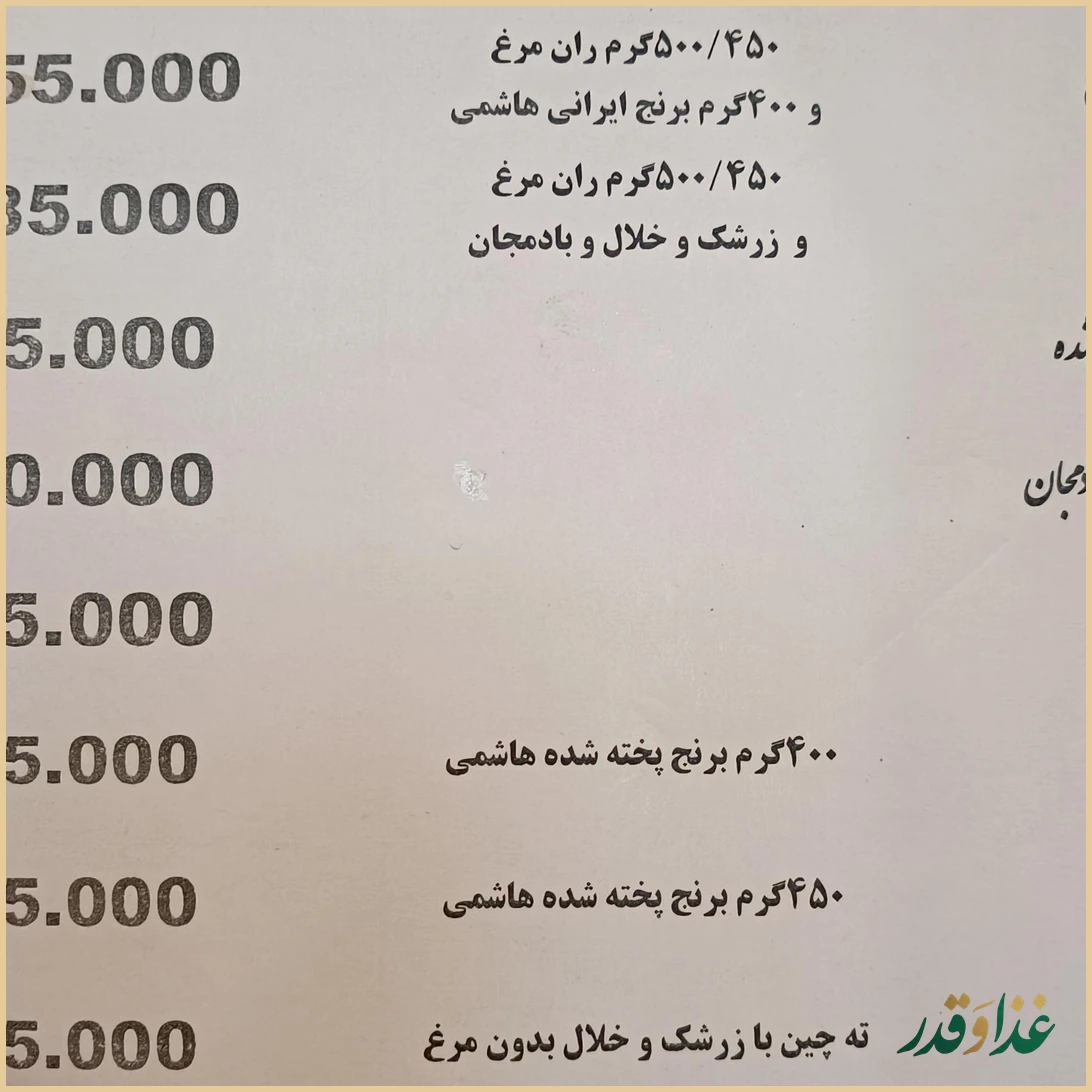 ۵۰۰/۴۵۰گرم ران مرغ
و ۴۰۰گرم برنج ایرانی هاشمی
55.000
۵۰۰/۴۵۰گرم ران مرغ
و زرشک و خلال و بادمجان
35.000
5.000
0.000
5.000
۴۰۰گرم برنج پخته شده هاشمی
5.000
۴۵۰گرم برنج پخته شده هاشمی
5.000
ته چین با زرشک و خلال بدون مرغ
5.000
غذا و قدر